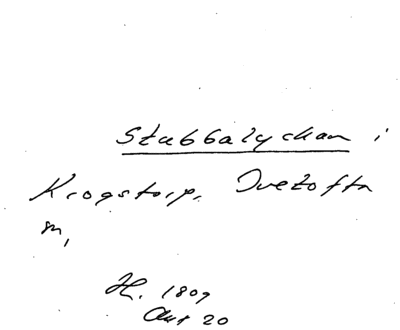 Stubbalyckan i
Krogstorp, Ivetofta
sn,
H. 1809
Akt 20